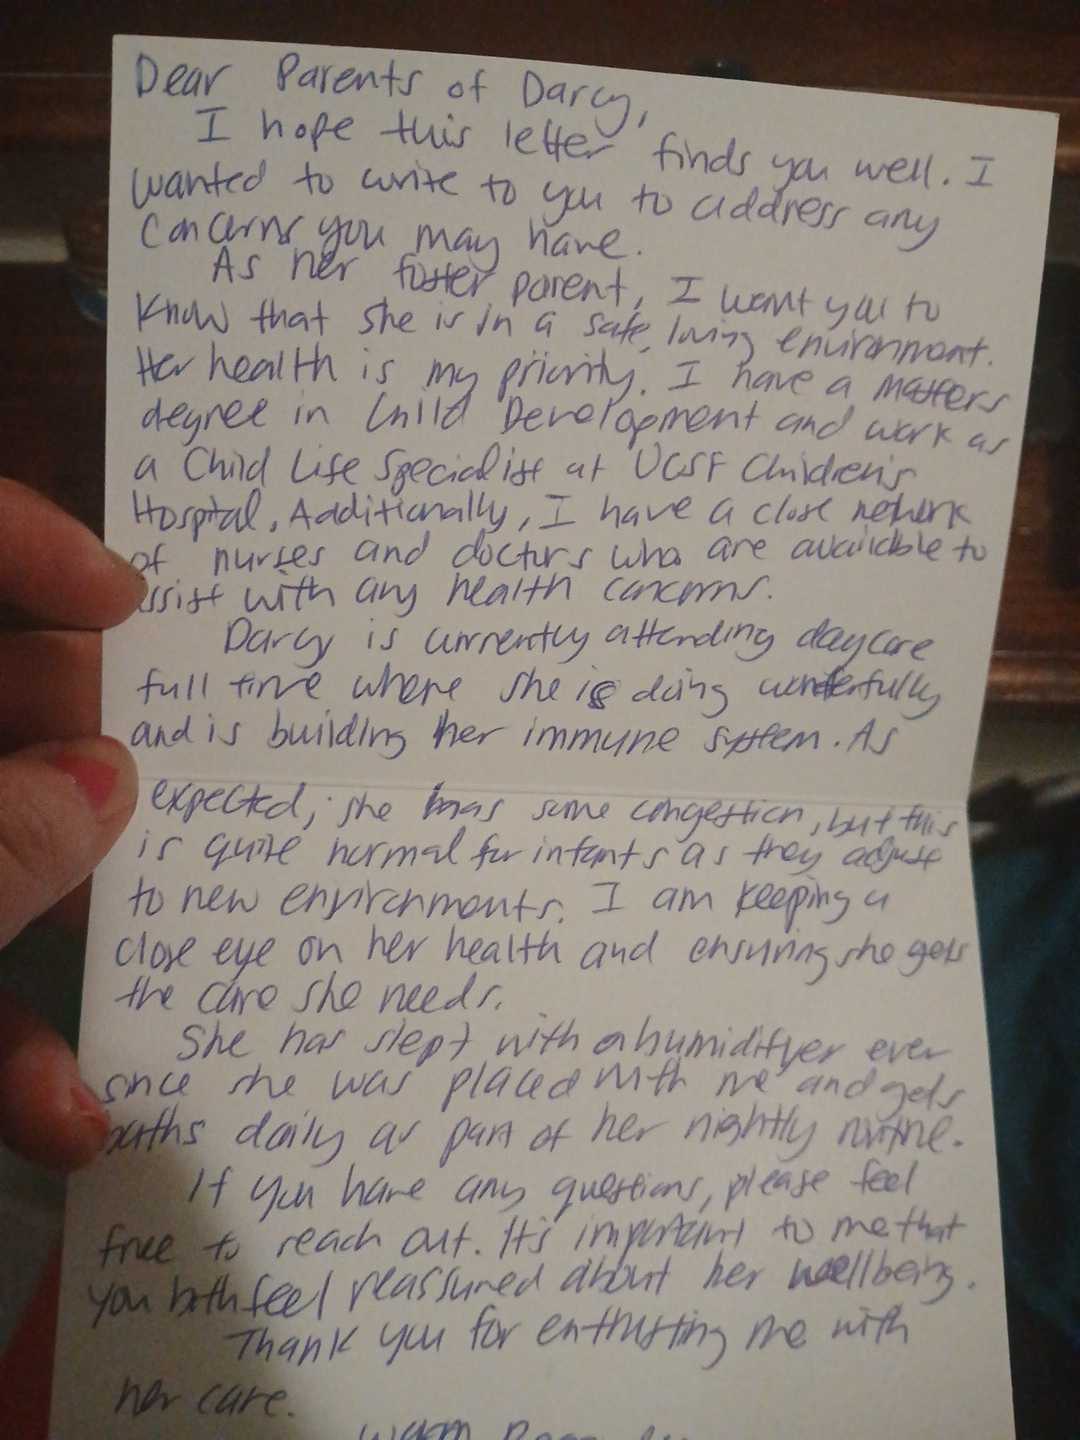 Dear Parents of Darcy,
I hope this letter finds you well. I
wanted to write to you to address any
concerns you may have.
As her foster parent, I want you to
know that she is in a safe, loving environment.
Her health is my priority. I have a Masters
degree in Child Development and work as
a Child Life Specialist at UCSF Children's
Hospital. Additionally, I have a close network
of nurses and doctors who are available to
assist with any health concerns.
Darcy is currently attending daycare
full time where she is doing wonderfully
and is building her immune system. As
expected, she has some congestion, but this
is quite normal for infants as they adjust
to new environments. I am keeping a
close eye on her health and ensuring she gets
the care she needs.
She has slept with a humidifyer ever
since she was placed with me and gets
baths daily as part of her nightly routine.
If you have any questions, please feel
free to reach out. It's important to me that
you both feel reassured about her wellbeing.
Thank you for entrusting me with
her care.
Warm